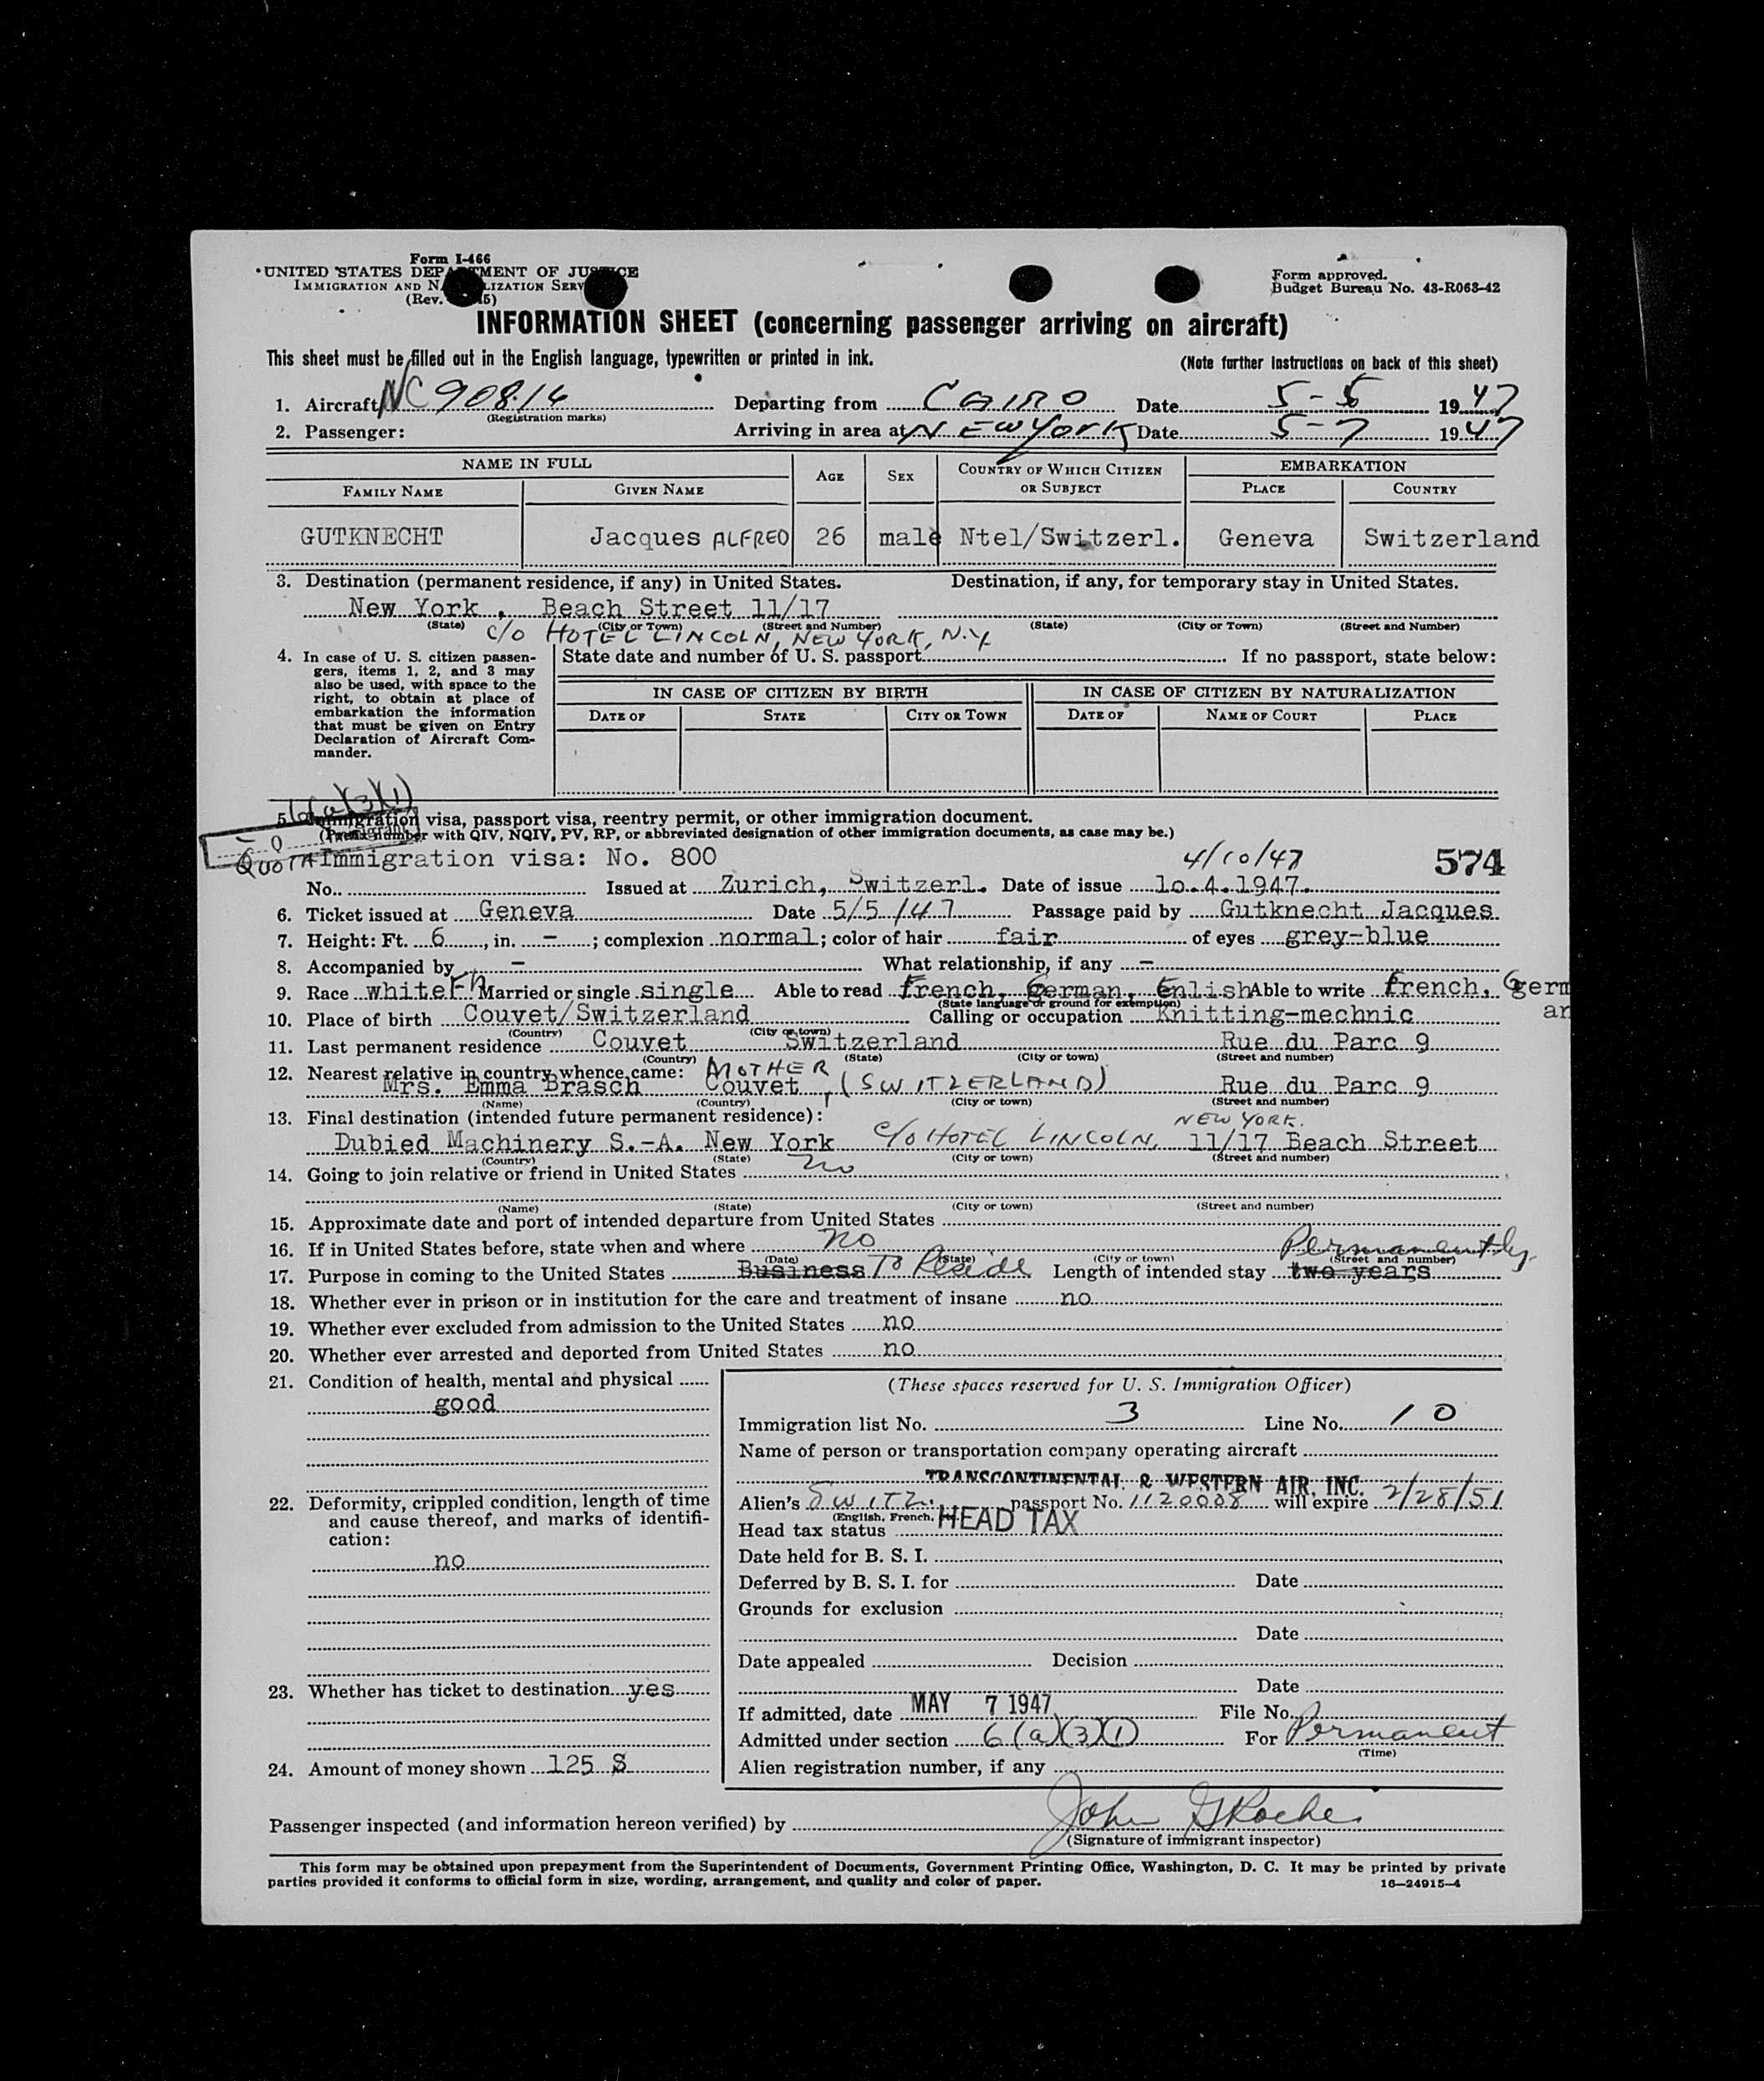 Form I-466
UNITED STATES DEPARTMENT OF JUSTICE
IMMIGRATION AND NATURALIZATION SERV
(Rev. 45)
Form approved.
Budget Bureau No. 43-R063-42
INFORMATION SHEET (concerning passenger arriving on aircraft)
This sheet must be filled out in the English language, typewritten or printed in ink. (Note further instructions on back of this sheet)
1. Aircraft NC 90814 Departing from CAIRO Date 5-5 1947
(Registration marks)
2. Passenger: Arriving in area at NEW YORK Date 5-7 1947
NAME IN FULL AGE SEX COUNTRY OF WHICH CITIZEN OR SUBJECT EMBARKATION
FAMILY NAME GIVEN NAME PLACE COUNTRY
GUTKNECHT Jacques ALFRED 26 male Ntel/Switzerl. Geneva Switzerland
3. Destination (permanent residence, if any) in United States. Destination, if any, for temporary stay in United States.
New York , Beach Street 11/17
(State) (City or Town) (Street and Number) (State) (City or Town) (Street and Number)
c/o HOTEL LINCOLN, NEW YORK, N.Y
4. In case of U. S. citizen passengers, items 1, 2, and 3 may also be used, with space to the right, to obtain at place of embarkation the information that must be given on Entry Declaration of Aircraft Commander.
State date and number of U. S. passport If no passport, state below:
IN CASE OF CITIZEN BY BIRTH IN CASE OF CITIZEN BY NATURALIZATION
DATE OF STATE CITY OR TOWN DATE OF NAME OF COURT PLACE
6(a)(3)(1)
5. Immigration visa, passport visa, reentry permit, or other immigration document.
(Prefix number with QIV, NQIV, PV, RP, or abbreviated designation of other immigration documents, as case may be.)
QUOTA Immigration visa: No. 800 4/10/47 574
No. Issued at Zurich, Switzerl. Date of issue 10.4.1947.
6. Ticket issued at Geneva Date 5/5/47 Passage paid by Gutknecht Jacques
7. Height: Ft. 6, in. - ; complexion normal; color of hair fair of eyes grey-blue
8. Accompanied by - What relationship, if any -
9. Race white Married or single single Able to read french, German, Enlish Able to write french, Germ
(State language or ground for exemption) an
10. Place of birth Couvet/Switzerland Calling or occupation Knitting-mechnic
(Country) (City or town)
11. Last permanent residence Couvet Switzerland Rue du Parc 9
(Country) (State) (City or town) (Street and number)
12. Nearest relative in country whence came: MOTHER
Mrs. Emma Brasch Couvet, (SWITZERLAND) Rue du Parc 9
(Name) (Country) (City or town) (Street and number)
13. Final destination (intended future permanent residence): NEW YORK.
Dubied Machinery S.-A. New York c/o HOTEL LINCOLN, 11/17 Beach Street
(Country) (State) (City or town) (Street and number)
14. Going to join relative or friend in United States no
(Name) (State) (City or town) (Street and number)
15. Approximate date and port of intended departure from United States
16. If in United States before, state when and where no
(Date) (State) (City or town) (Street and number)
Permanently
17. Purpose in coming to the United States Business To Reside Length of intended stay two years
18. Whether ever in prison or in institution for the care and treatment of insane no
19. Whether ever excluded from admission to the United States no
20. Whether ever arrested and deported from United States no
21. Condition of health, mental and physical
good
22. Deformity, crippled condition, length of time and cause thereof, and marks of identification:
no
23. Whether has ticket to destination yes
24. Amount of money shown 125 $
(These spaces reserved for U. S. Immigration Officer)
Immigration list No. 3 Line No. 10
Name of person or transportation company operating aircraft
TRANSCONTINENTAL & WESTERN AIR, INC.
Alien's SWITZ. passport No. 1120008 will expire 2/28/51
(English, French,
Head tax status HEAD TAX
Date held for B. S. I.
Deferred by B. S. I. for Date
Grounds for exclusion
Date
Date appealed Decision
Date
If admitted, date MAY 7 1947 File No.
Admitted under section 6(a)(3)(1) For Permanent
(Time)
Alien registration number, if any
Passenger inspected (and information hereon verified) by John G Roche
(Signature of immigrant inspector)
This form may be obtained upon prepayment from the Superintendent of Documents, Government Printing Office, Washington, D. C. It may be printed by private
parties provided it conforms to official form in size, wording, arrangement, and quality and color of paper. 16—24915-4